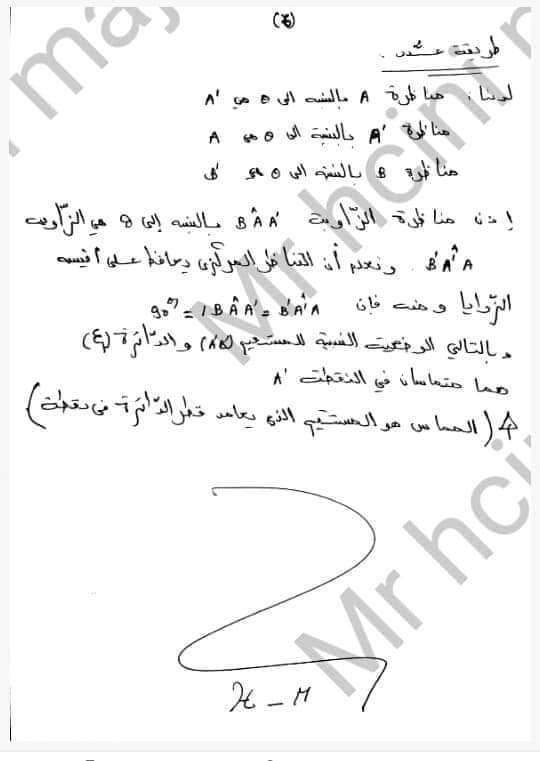 (6)
طريقة عدد 2.
لدينا: مناظرة A بالنسبة الى O هي A'
مناظرة A' بالنسبة الى O هي A
مناظرة B بالنسبة الى O هي B'
إذن مناظرة الزّاوية BÂA' بالنسبة إلى O هي الزّاوية
B'Â'A. ونعلم أن التناظر المركزي يحافظ على أقيسة
الزّوايا ومنه فإن BÂA' = B'Â'A = 90°
وبالتالي الوضعية النسبية للمستقيم (A'B') والدّائرة (ع)
هما متماسان في النقطة A'
(المماس هو المستقيم الذي يعامد قطر الدّائرة في نقطة)
H - M
Mr hcini
Mr hcini